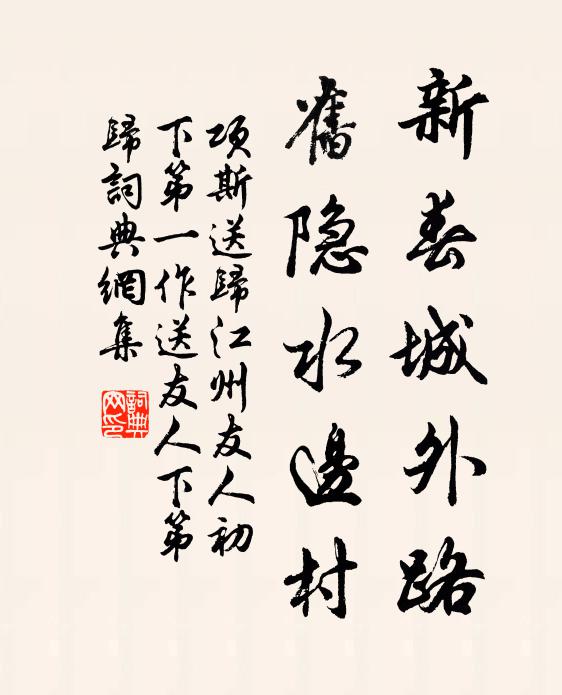 新春城外路
舊隐水邊村
项斯送歸江州友人初
下第一作送友人下第
歸詞典網集
詞典
网印